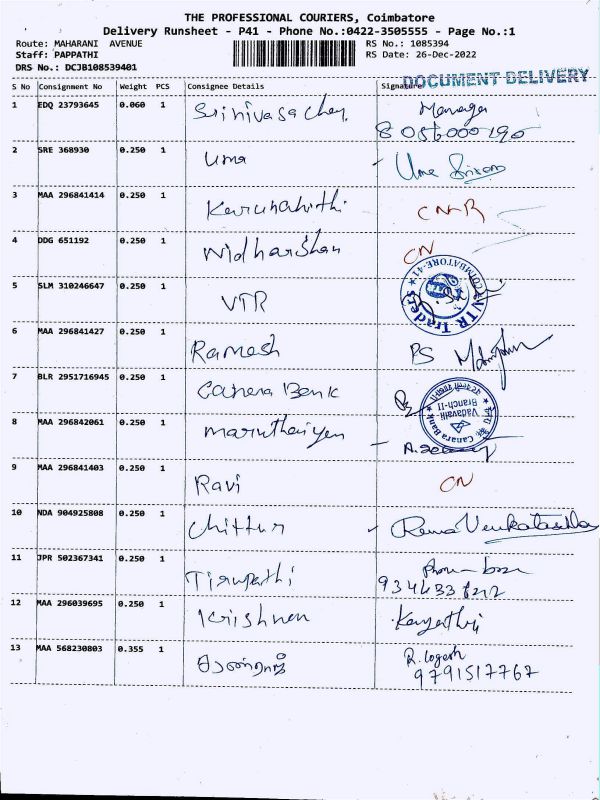 THE PROFESSIONAL COURIERS, Coimbatore
Delivery Runsheet - P41 - Phone No.:0422-3505555 - Page No.:1
Route: MAHARANI AVENUE RS No.: 1085394
Staff: PAPPATHI RS Date: 26-Dec-2022
DRS No.: DCJB108539401
DOCUMENT DELIVERY
S No Consignment No Weight PCS Consignee Details Signature
1 EDQ 23793645 0.060 1 Manager
2 SRE 368930 0.250 1 Uma Uma
3 MAA 296841414 0.250 1 Karunanithi
4 DDG 651192 0.250 1 Nidharshan CN
COIMBATORE-41
VTR Traders
5 SLM 310246647 0.250 1 VTR
6 MAA 296841427 0.250 1 Ramesh PS
7 BLR 2951716945 0.250 1 Canera Benk
Canara Bank
Vadavalli
Branch-II
8 MAA 296842061 0.250 1
9 MAA 296841403 0.250 1 Ravi CN
10 NDA 904925808 0.250 1 Chittur Rema
11 JPR 502367341 0.250 1 Tirupathi
12 MAA 296039695 0.250 1 Krishnen
13 MAA 568230803 0.355 1 R. Logesh
9791517767